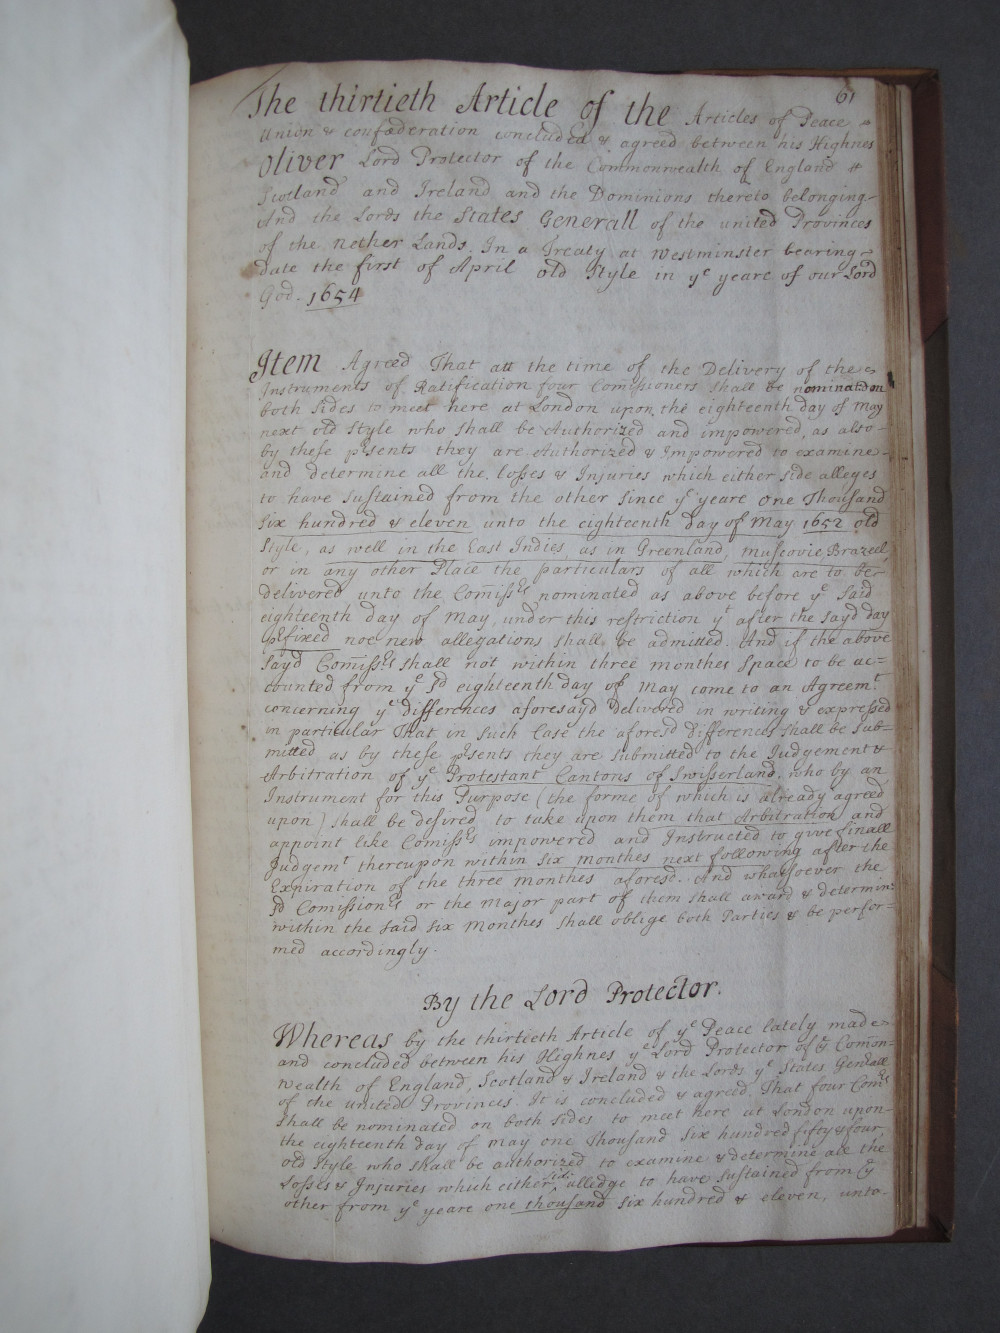 61
The thirtieth Article of the Articles of Peace
Union & confæderation concluded & agreed between his Highnes
Oliver Lord Protector of the Commonwealth of England &
Scotland and Ireland and the Dominions thereto belonging
And the Lords the States Generall of the united Provinces
of the Nether Lands. In a Treaty at Westminster bearing
date the first of April old Style in ye yeare of our Lord
God. 1654
Item Agreed That att the time of the Delivery of the
Instruments of Ratification four Comissioners shall be nominated on
both sides to meet here at London upon the eighteenth day of May
next old Style who shall be Authorized and impowered, as also
by these psents they are Authorized & Impowered to examine
and determine all the losses & Injuries which either side alleges
to have sustained from the other since ye yeare One Thousand
Six hundred & eleven unto the eighteenth day of May 1652 old
Style, as well in the East Indies, as in Greenland, Muscovie Brazeel,
or in any other Place the particulars of all which are to be
delivered unto the Comissrs nominated as above before ye said
eighteenth day of May, under this restriction yt after the sayd day
pfixed noe new allegations shall be admitted. And if the above
sayd Comissrs shall not within three monthes space to be ac=
counted from ye sd eighteenth day of May come to an Agreemt
concerning ye differences aforesayd Delivered in writing & expressed
in particular That in such Case the aforesd differences shall be sub=
mitted as by these psents they are submitted to the Judgement &
Arbitration of ye Protestant Cantons of Swisserland. who by an
Instrument for this Purpose (the forme of which is already agreed
upon) shall be desired to take upon them that Arbitration and
appoint like Comissrs impowered and Instructed to give finall
Judgemt thereupon within six monthes next following after the
Expiration of the three monthes aforesd. And whatsoever the
sd Comissionrs or the major part of them shall award & determin:
within the said six Monthes shall oblige both Parties & be perfor=
med accordingly.
By the Lord Protector.
Whereas by the thirtieth Article of ye Peace lately made
and concluded between his Highnes ye Lord Protector of ye Comon=
wealth of England, Scotland & Ireland & the Lords ye States Genrall
of the united Provinces. It is concluded & agreed That four Comrs
shall be nominated on both sides to meet here at London upon
the eighteenth day of May one thousand six hundred fifty & four
old Style who shall be authorized to examine & determine all the
Losses & Injuries which either side alledge to have sustained from ye
other from ye yeare one thousand six hundred & eleven, unto